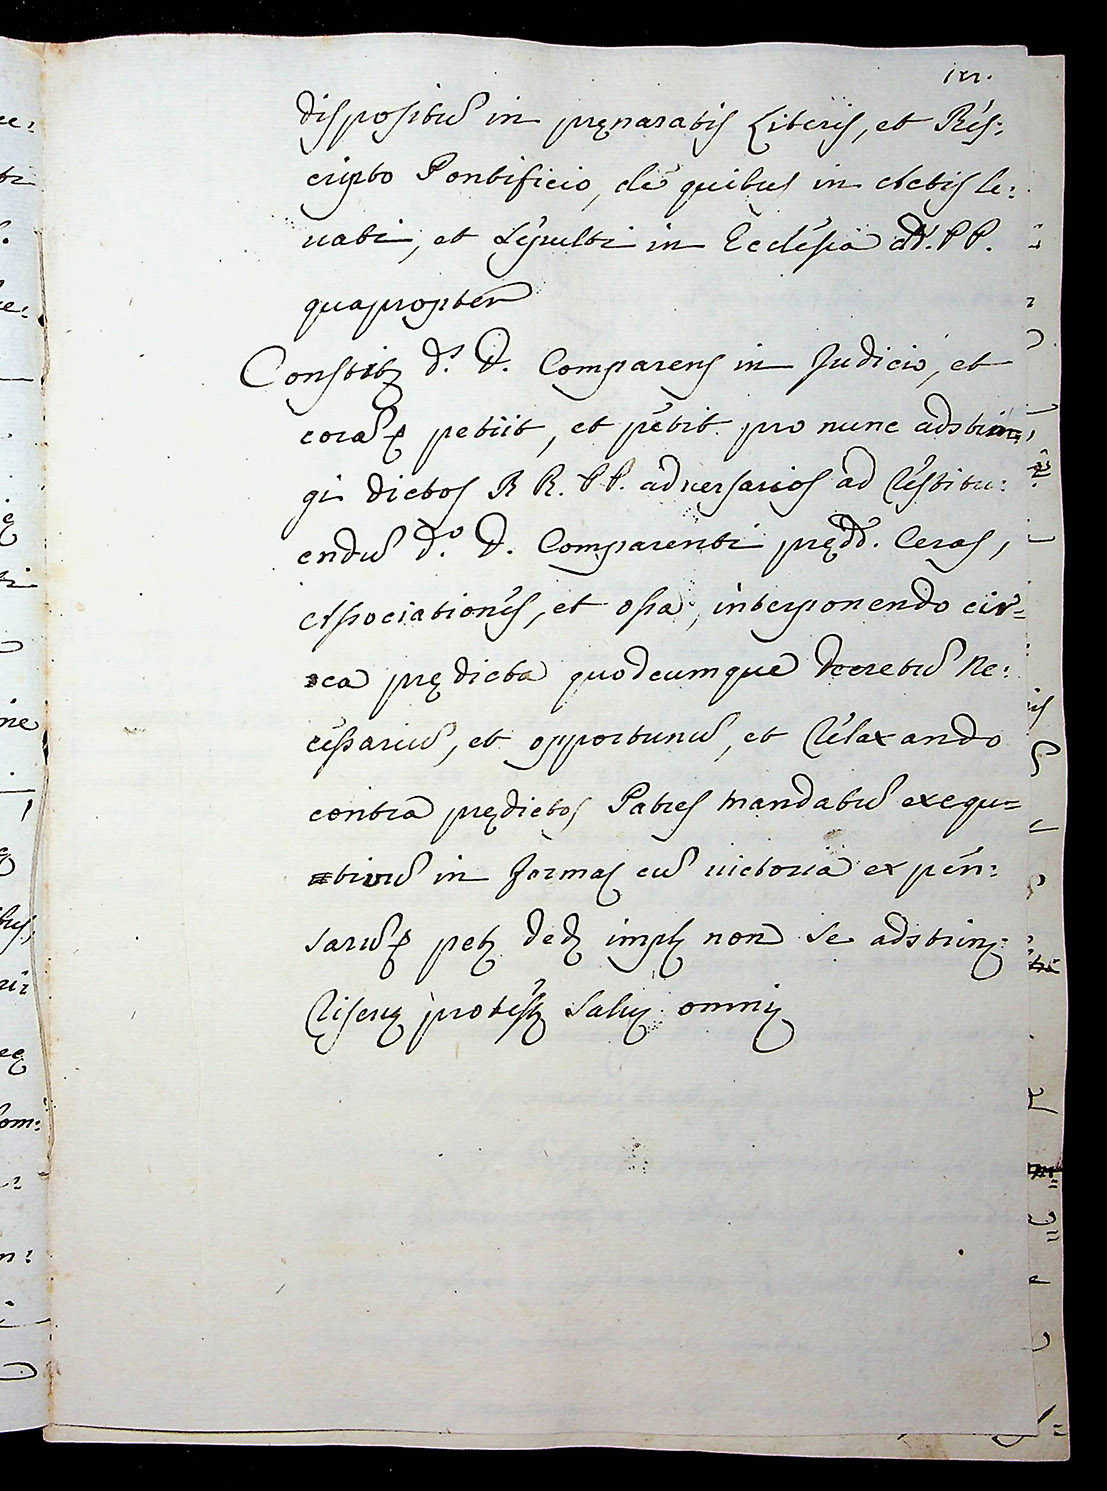 dispositũ in pręnaratis Literis, et Res:
cripto Pontificio, de quibus in Actis le:
uati, et sepulti in Ecclesia dd. PP.
quapropter
Constitũ d.s D. Comparens in Judicio, et
corã petiit, et petit pro nunc adstrin=
gi dictos RR. PP. aduersarios ad Restitu:
endũ d.o D. Comparenti prędd. Ceras,
Associationes, et ossa, interponendo cir=
ca prędicta quodcumque decretũ Ne:
cessariũ, et opportunũ, et Relaxando
contra prędictos Patres mandatũ exequ=
tiuũ in forma cũ uictoria expen:
sarũ non se adstring:
omni